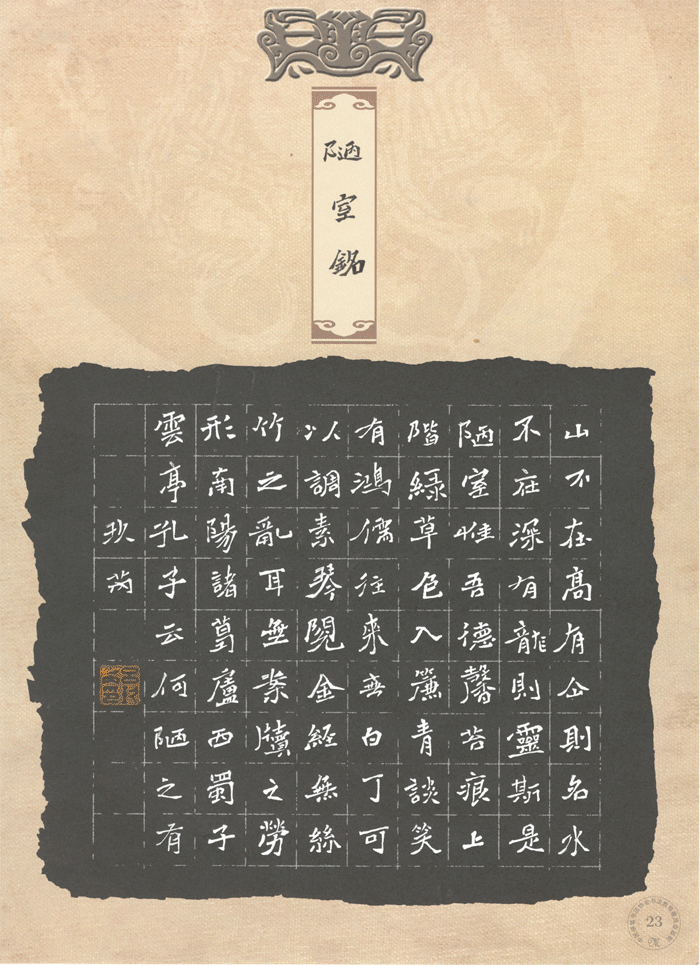 陋室銘
山不在高有仙則名水
不在深有龍則靈斯是
陋室惟吾德馨苔痕上
階綠草色入簾青談笑
有鴻儒往來無白丁可
以調素琴閱金經無絲
竹之亂耳無案牘之勞
形南陽諸葛廬西蜀子
雲亭孔子云何陋之有
23